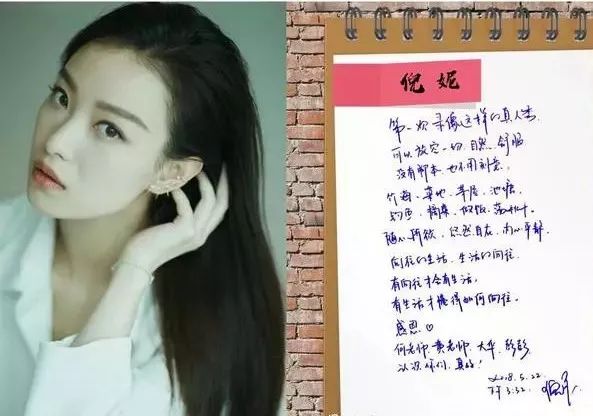 倪妮
第一次录像这样的真人类
可以放空一切、自然、舒服
没有脚本也不用刻意.
竹海、菜地、茅屋、池塘、
钓鱼、摘菜、做饭、荡秋千.
随心所欲、悠然自在、内心平静
向往的生活、生活的向往.
有向往才会有生活,
有生活才懂得如何向往.
感恩♡
何老师、黄老师、大华、彭彭
认识你们、真好!
2018.5.22.
下午3:52.